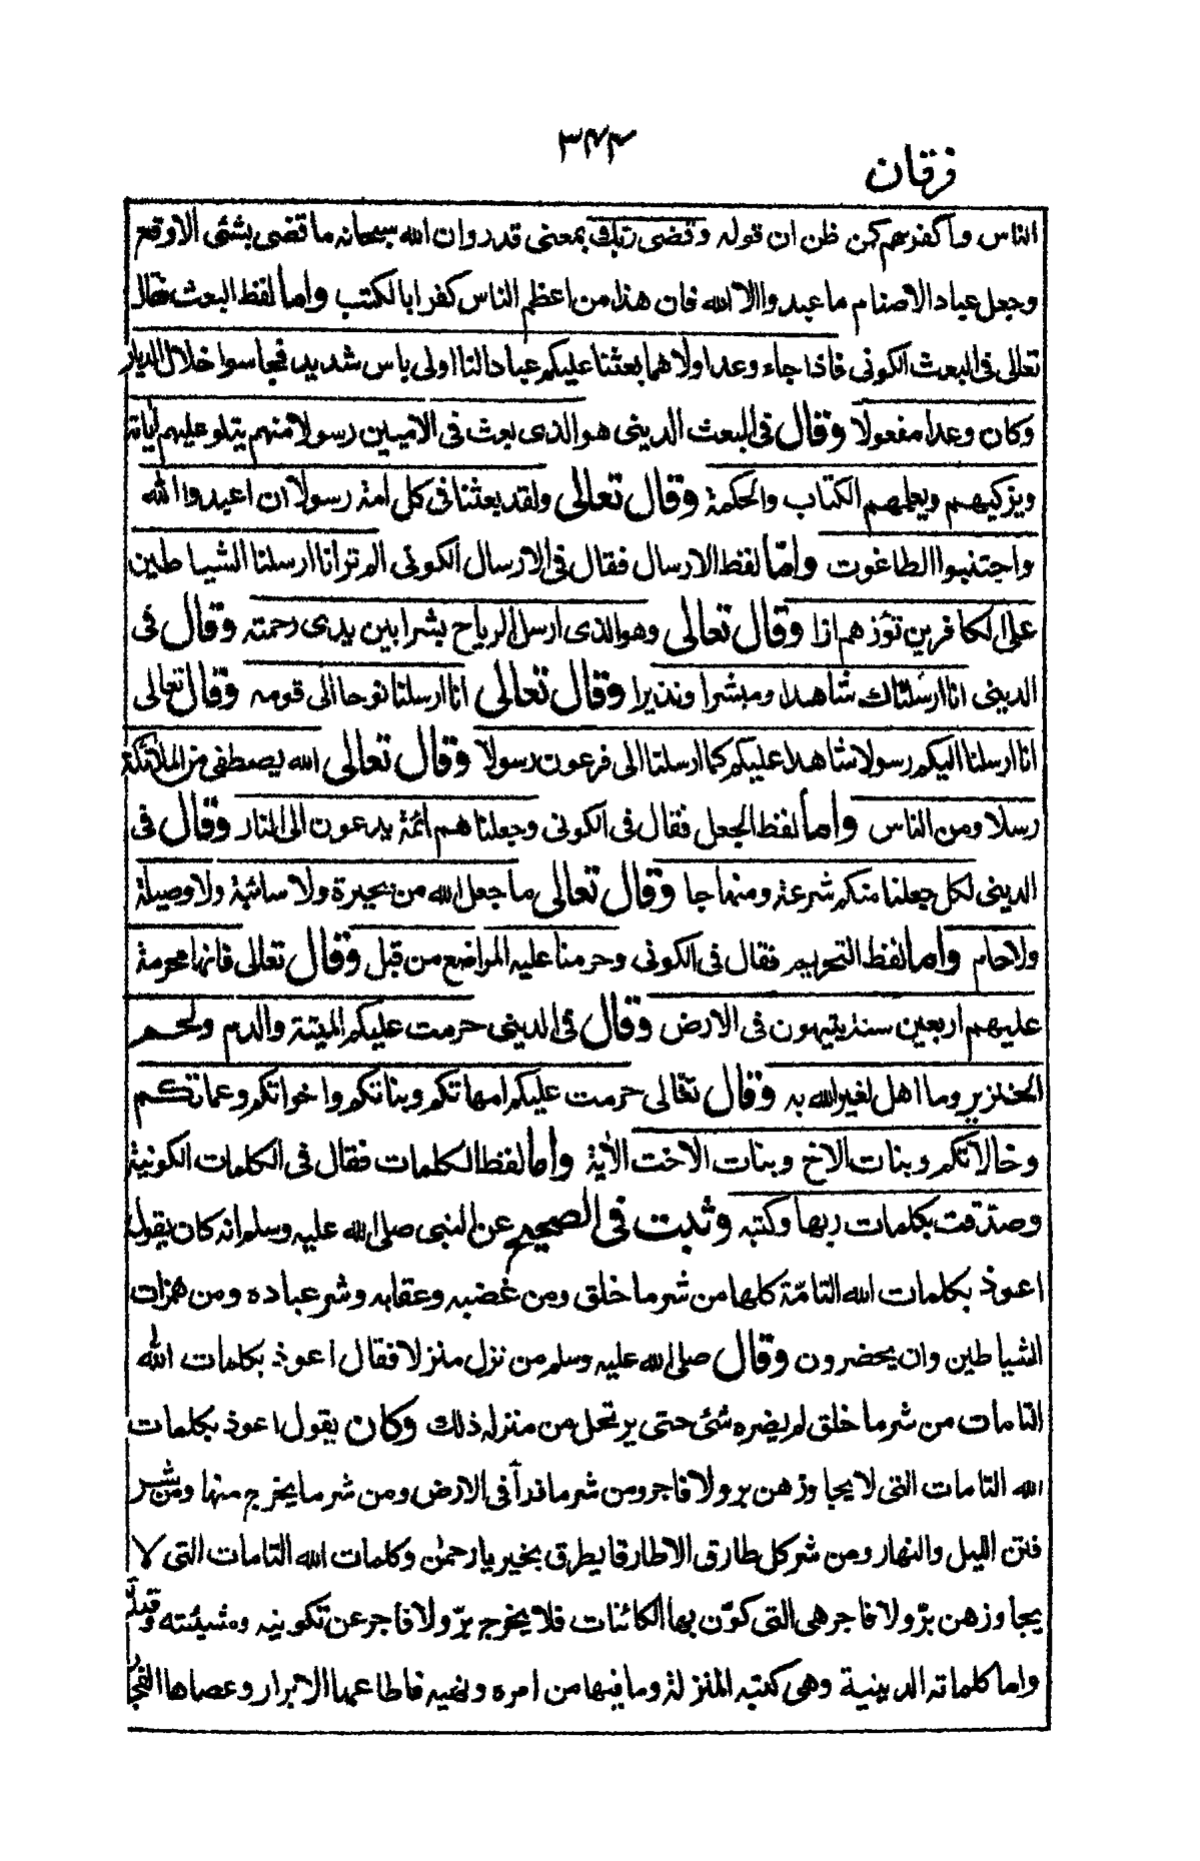 ٣٤٤
فرقان
الناس واكفرهم كمن ظن ان قوله وقضى ربك بمعنى قدر وان الله سبحانه ما قضى بشئ الا وقع
وجعل عباد الاصنام ما عبدوا الا الله فان هذا من اعظم الناس كفرا بالكتب واما لفظ البعث فقال
تعالى فى البعث الكونى فاذا جاء وعد اولاهما بعثنا عليكم عبادا لنا اولى باس شديد فجاسوا خلال الديار
وكان وعدا مفعولا وقال فى البعث الدينى هو الذى بعث فى الاميين رسولا منهم يتلو عليهم اياته
ويزكيهم ويعلمهم الكتاب والحكمة وقال تعالى ولقد بعثنا فى كل امة رسولا ان اعبدوا الله
واجتنبوا الطاغوت وامّا لفظ الارسال فقال فى الارسال الكونى الم تر انا ارسلنا الشياطين
على الكافرين تؤزهم ازا وقال تعالى وهو الذى ارسل الرياح بشرا بين يدى رحمته وقال فى
الدينى انا ارسلناك شاهدا ومبشرا ونذيرا وقال تعالى انا ارسلنا نوحا الى قومه وقال تعالى
انا ارسلنا اليكم رسولا شاهدا عليكم كما ارسلنا الى فرعون رسولا وقال تعالى الله يصطفى من الملائكة
رسلا ومن الناس واما لفظ الجعل فقال فى الكونى وجعلنا هم ائمة يدعون الى النار وقال فى
الدينى لكل جعلنا منكم شرعة ومنهاجا وقال تعالى ما جعل الله من بحيرة ولا سائبة ولا وصيلة
ولا حام واما لفظ التحريم فقال فى الكونى وحرمنا عليه المراضع من قبل وقال تعالى فانها محرمة
عليهم اربعين سنة يتيهون فى الارض وقال فى الدينى حرمت عليكم الميتة والدم ولحم
الخنزير وما اهل لغير الله به وقال تعالى حرمت عليكم امهاتكم وبناتكم واخواتكم وعماتكم
وخالاتكم وبنات الاخ وبنات الاخت الاٰية واما لفظ الكلمات فقال فى الكلمات الكونية
وصدقت بكلمات ربها وكتبه وثبت فى الصحيح عن النبى صلى الله عليه وسلم انه كان يقول
اعوذ بكلمات الله التامّة كلها من شر ما خلق ومن غضبه وعقابه وشر عباده ومن همزات
الشياطين وان يحضرون وقال صلى الله عليه وسلم من نزل منزلا فقال اعوذ بكلمات الله
التامات من شر ما خلق لم يضره شئ حتى يرتحل من منزله ذلك وكان يقول اعوذ بكلمات
الله التامات التى لا يجاوزهن بر ولا فاجر ومن شر ما ذرأ فى الارض ومن شر ما يخرج منها ومن شر
فتن الليل والنهار ومن شر كل طارق الا طارقا يطرق بخير يا رحمن وكلمات الله التامات التى لا
يجاوزهن برّ ولا فاجر هى التى كوّن بها الكائنات فلا يخرج برّ ولا فاجر عن تكوينه ومشيئته
واما كلماته الدينية وهى كتبه المنزلة وما فيها من امره ونهيه فاطاعها الابرار وعصاها الفجار